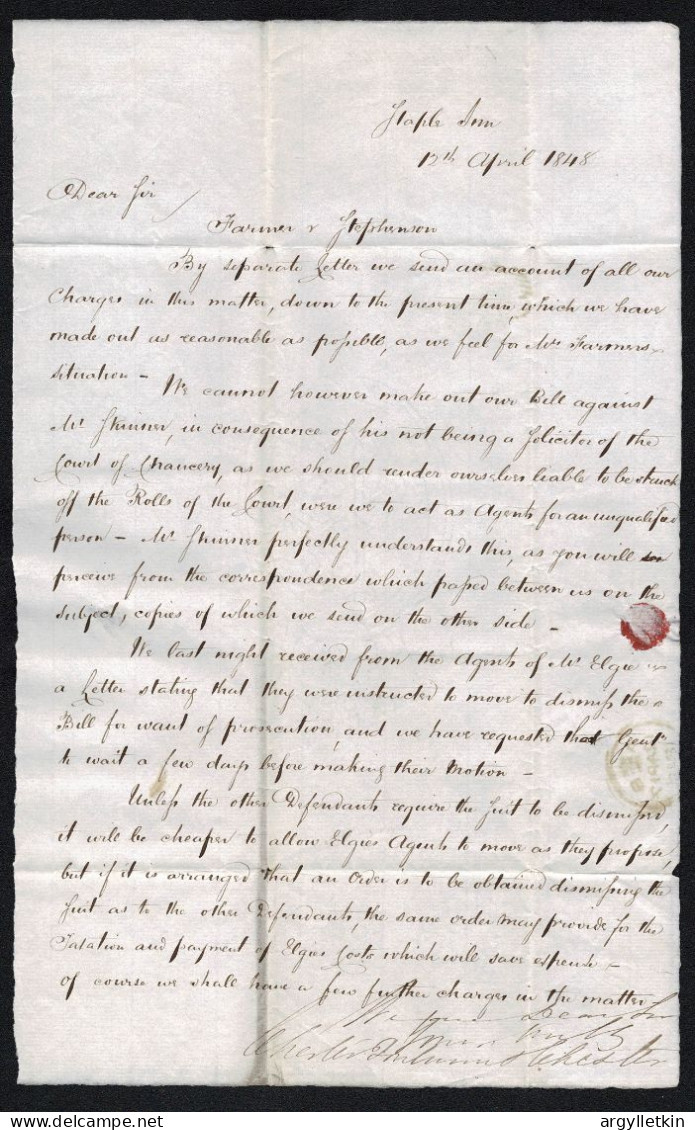 Staple Inn
12th April 1848
Dear Sir
Farmer v Stephenson
By separate Letter we send an account of all our
Charges in this matter, down to the present time, which we have
made out as reasonable as possible, as we feel for Mr Farmers
situation – We cannot however make out our Bill against
Mr Skinner, in consequence of his not being a Solicitor of the
Court of Chancery, as we should render ourselves liable to be struck
off the Rolls of the Court, were we to act as Agents for an unqualified
person – Mr Skinner perfectly understands this, as you will
perceive from the correspondence which passed between us on the
subject, copies of which we send on the other side –
We last night received from the Agents of Mr Elgie
a Letter stating that they were instructed to move to dismiss the
Bill for want of prosecution, and we have requested that Gentn
to wait a few days before making their Motion –
Unless the other Defendants require the suit to be dismissed,
it will be cheaper to allow Elgies Agents to move as they propose,
but if it is arranged that an Order is to be obtained dismissing the
suit as to the other Defendants, the same order may provide for the
Taxation and payment of Elgies Costs which will save expense –
of course we shall have a few further charges in the matter –
We are Dear Sir
Your
Chester
argylletkin
www.delcampe.net
argylletkin